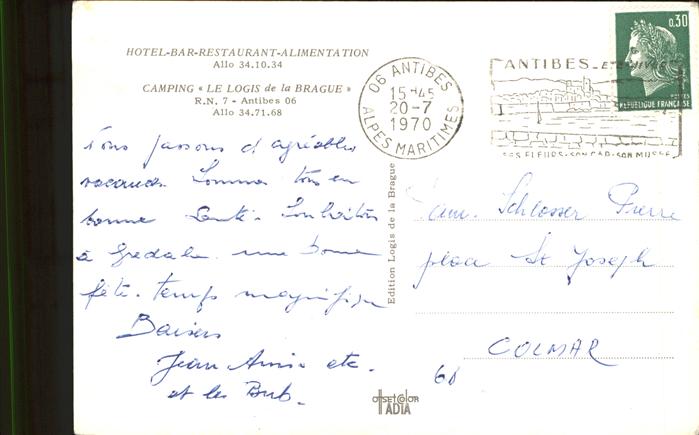 HOTEL-BAR-RESTAURANT-ALIMENTATION
Allo 34.10.34
CAMPING « LE LOGIS de la BRAGUE »
R.N. 7 - Antibes 06
Allo 34.71.68
06 ANTIBES
15 H45
20-7
1970
ALPES MARITIMES
ANTIBES - ETE-HIVER
SES FLEURS-SON CAP-SON MUSEE
0,30
POSTES
REPUBLIQUE FRANÇAISE
Nous passons d'agréables
vacances. Sommes tous en
bonne santé. Souhaitons
à une bonne
fête. temps magnifique
Baisers
Jean Annie etc.
et les Bub.
Edition Logis de la Brague
Fam. Schlosser Pierre
place St Joseph
COLMAR
68
offset color
IADTA